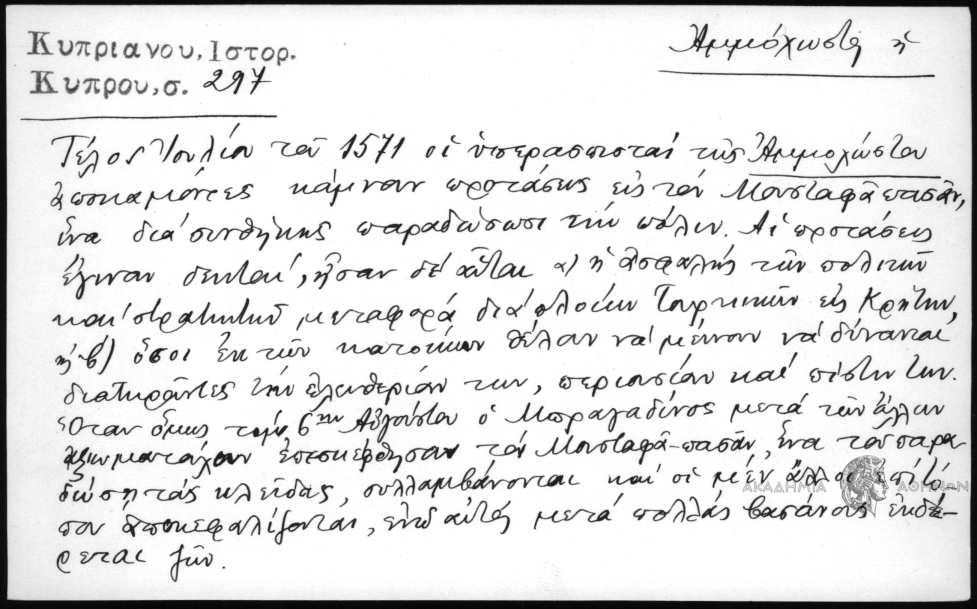 Κυπριανου, Ιστορ.
Κυπρου, σ. 297
Ἀμμόχωστος ἡ
Τέλος Ἰουλίου τοῦ 1571 οἱ ὑπερασπισταί τῆς Ἀμμοχώστου
ἀποκαμόντες κάμνουν προτάσεις εἰς τόν Μουσταφᾶ πασᾶν,
ἵνα διά συνθήκης παραδώσωσι τήν πόλιν. Αἱ προτάσεις
ἔγιναν δεκταί, ἦσαν δέ αὗται α) ἡ ἀσφαλής τῶν πολιτῶν
καί στρατιωτῶν μεταφορά διά πλοίων Τουρκικῶν εἰς Κρήτην,
ἡ β) ὅσοι ἐκ τῶν κατοίκων θέλαν νά μείνουν νά δύνανται
διατηρῶντες τήν ἐλευθερίαν των, περιουσίαν καί πίστιν των.
Ὅταν ὅμως τήν 6ην Αὐγούστου ὁ Μπραγαδῖνος μετά τῶν ἄλλων
ἀξιωματούχων ἐπεσκέφθησαν τόν Μουσταφᾶ-πασᾶν, ἵνα τοῦ παρα-
δώσῃ τάς κλεῖδας, συλλαμβάνονται καί οἱ μέν ἄλλοι ἐπί τό-
που ἀποκεφαλίζονται, ἐνῶ αὐτός μετά πολλάς βασάνους ἐκδέ-
ρεται ζῶν.
ΑΚΑΔΗΜΙΑ ΑΘΗΝΩΝ